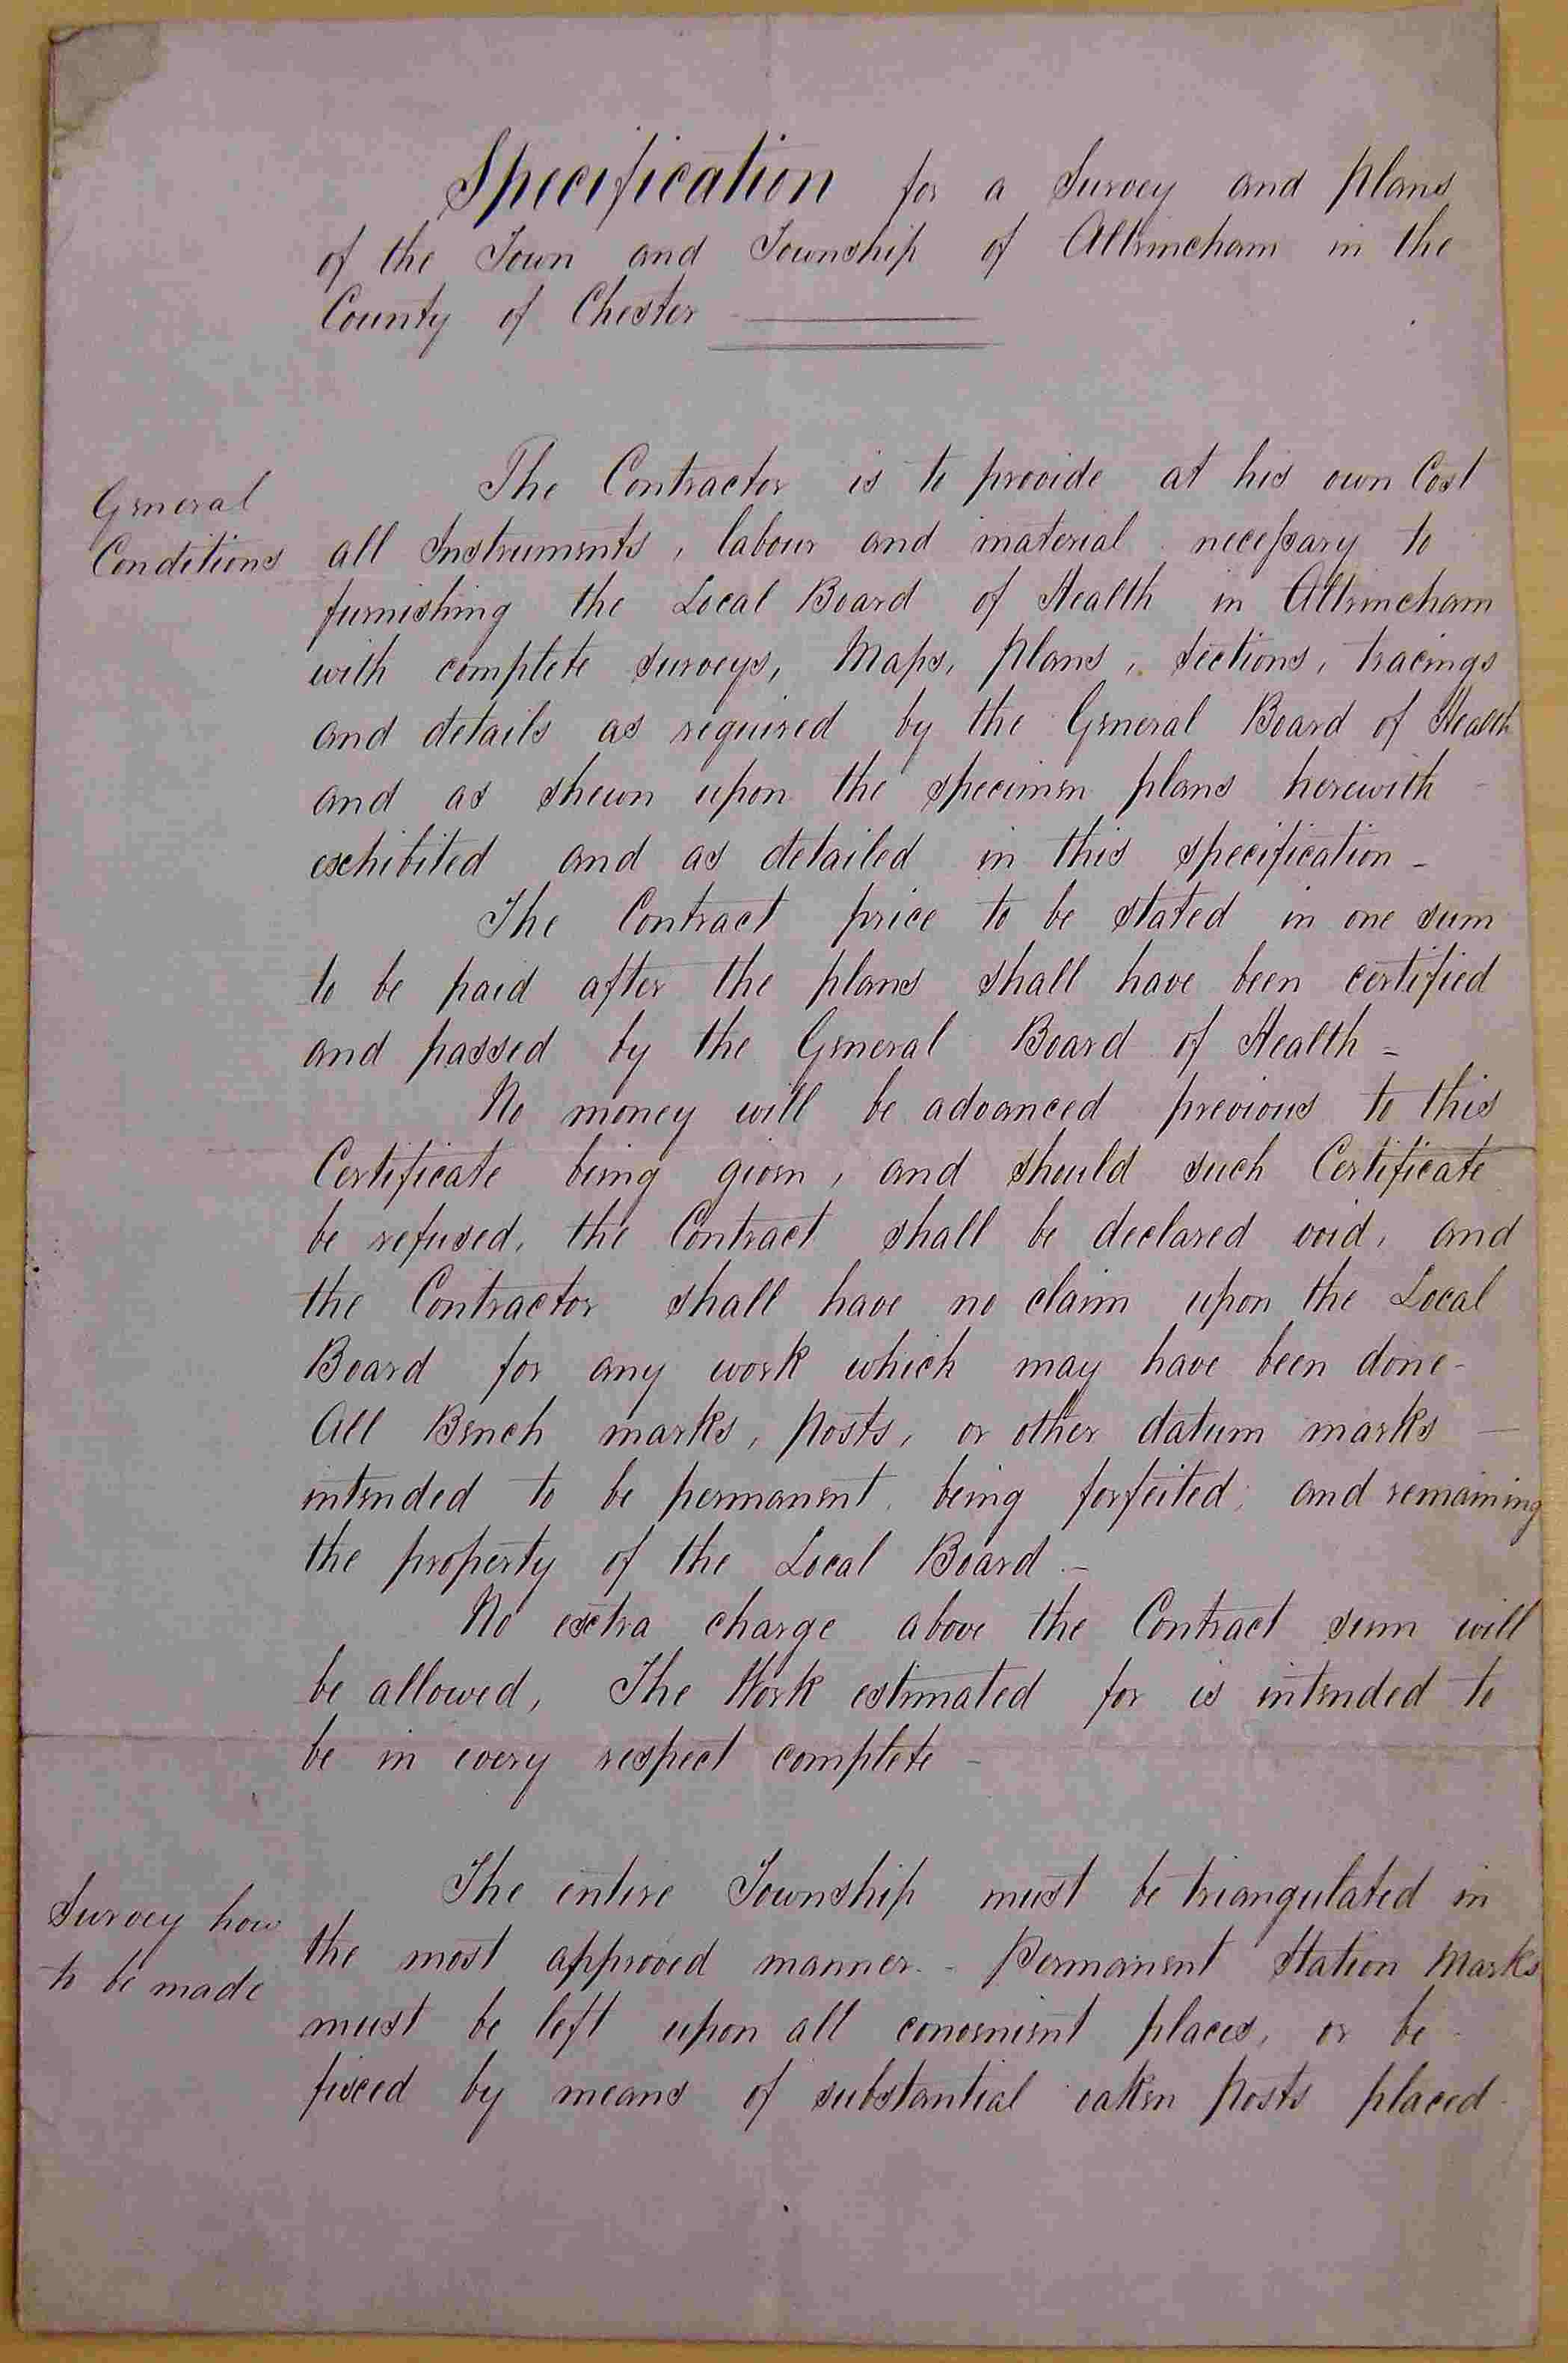 Specification for a Survey and plans
of the Town and Township of Altrincham in the
County of Chester
General
Conditions
The Contractor is to provide at his own Cost
all Instruments, labour and material necessary to
furnishing the Local Board of Health in Altrincham
with complete surveys, Maps, Plans, Sections, tracings
and details as required by the General Board of Health
and as shewn upon the specimen plans herewith -
exhibited and as detailed in this specification -
The Contract price to be stated in one sum
to be paid after the plans shall have been certified
and passed by the General Board of Health =
No money will be advanced previous to this
Certificate being given, and should such Certificate
be refused, the Contract shall be declared void, and
the Contractor shall have no claim upon the Local
Board for any work which may have been done -
All Bench marks, Posts, or other datum marks —
intended to be permanent, being forfeited, and remaining
the property of the Local Board. -
No extra charge above the Contract sum will
be allowed, The Work estimated for is intended to
be in every respect complete -
Survey how
to be made
The entire Township must be triangulated in
the most approved manner. - Permanent Station Marks
must be left upon all convenient places, or be
fixed by means of substantial oaken Posts placed